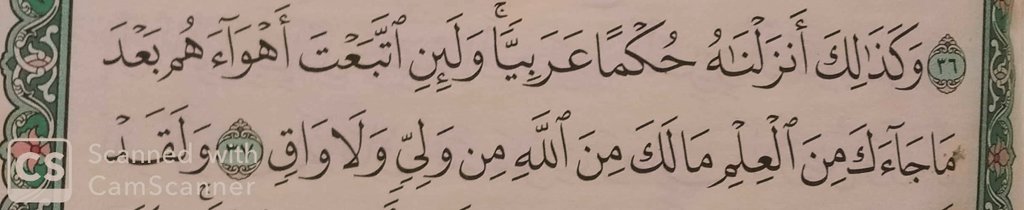 ﴿٣٦﴾ وَكَذَٰلِكَ أَنزَلْنَٰهُ حُكْمًا عَرَبِيًّا ۚ وَلَئِنِ ٱتَّبَعْتَ أَهْوَآءَهُم بَعْدَ
مَا جَآءَكَ مِنَ ٱلْعِلْمِ مَا لَكَ مِنَ ٱللَّهِ مِن وَلِىٍّ وَلَا وَاقٍ ﴿٣٧﴾ وَلَقَدْ
CS Scanned with
CamScanner